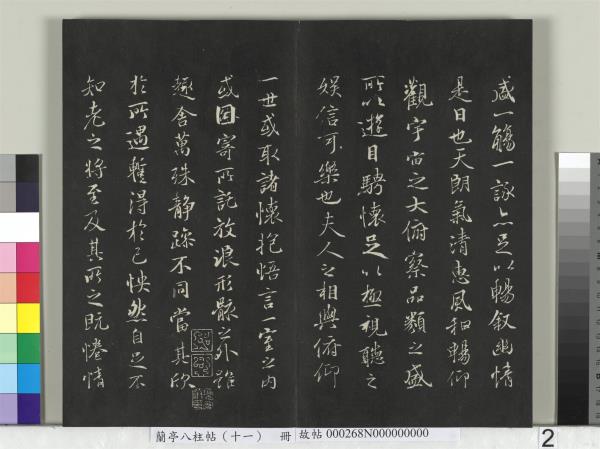 盛一觴一詠亦足以暢叙幽情
是日也天朗氣清惠風和暢仰
觀宇宙之大俯察品類之盛
所以遊目騁懷足以極視聽之
娛信可樂也夫人之相與俯仰
一世或取諸懷抱悟言一室之内
或因寄所託放浪形骸之外雖
趣舍萬殊静躁不同當其欣
於所遇蹔得於己怏然自足不
知老之將至及其所之既惓情
蘭亭八柱帖（十一） 冊 故帖 000268N000000000
2